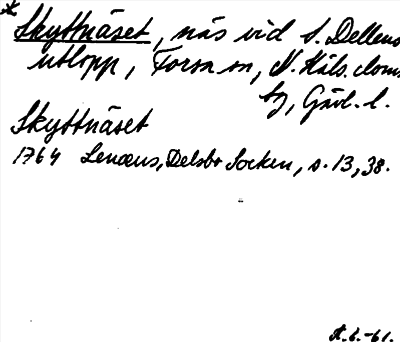 * Skyttnäset, näs vid S. Dellens
utlopp, Forsa sn, N. Häls. doms.
Gävl. l.
Skyttnäset
1764 Lenæus, Delsbo Socken, s. 13, 38.